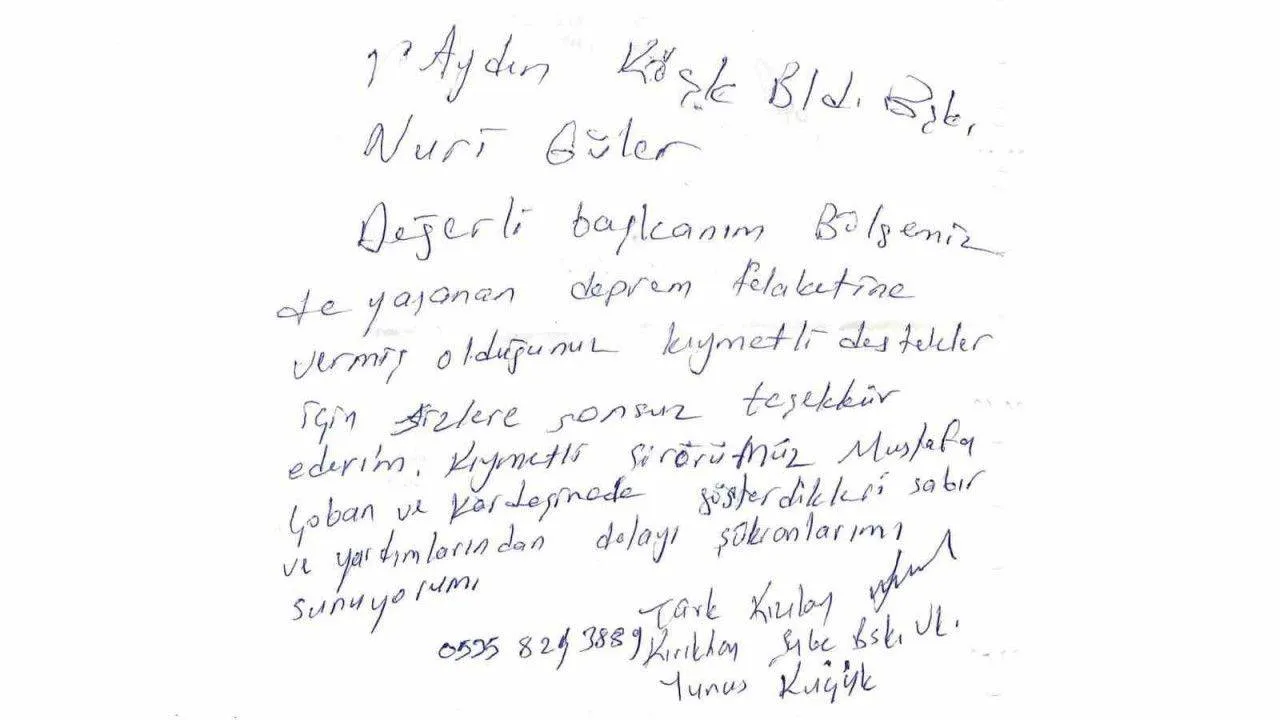 Aydın Köşk Bld. Bşk.
Nuri Güler
Değerli başkanım Bölgeniz
de yaşanan deprem felaketine
vermiş olduğunuz kıymetli destekler
için sizlere sonsuz teşekkür
ederim. Kıymetli şörörümüz Mustafa
Çoban ve Kardeşinede gösterdikleri sabır
ve yardımlarından dolayı şükranlarımı
sunuyorum
Türk Kızılay
0535 829 3889 Kırıkhan Şube Bşk. Vk.
Yunus Küçük